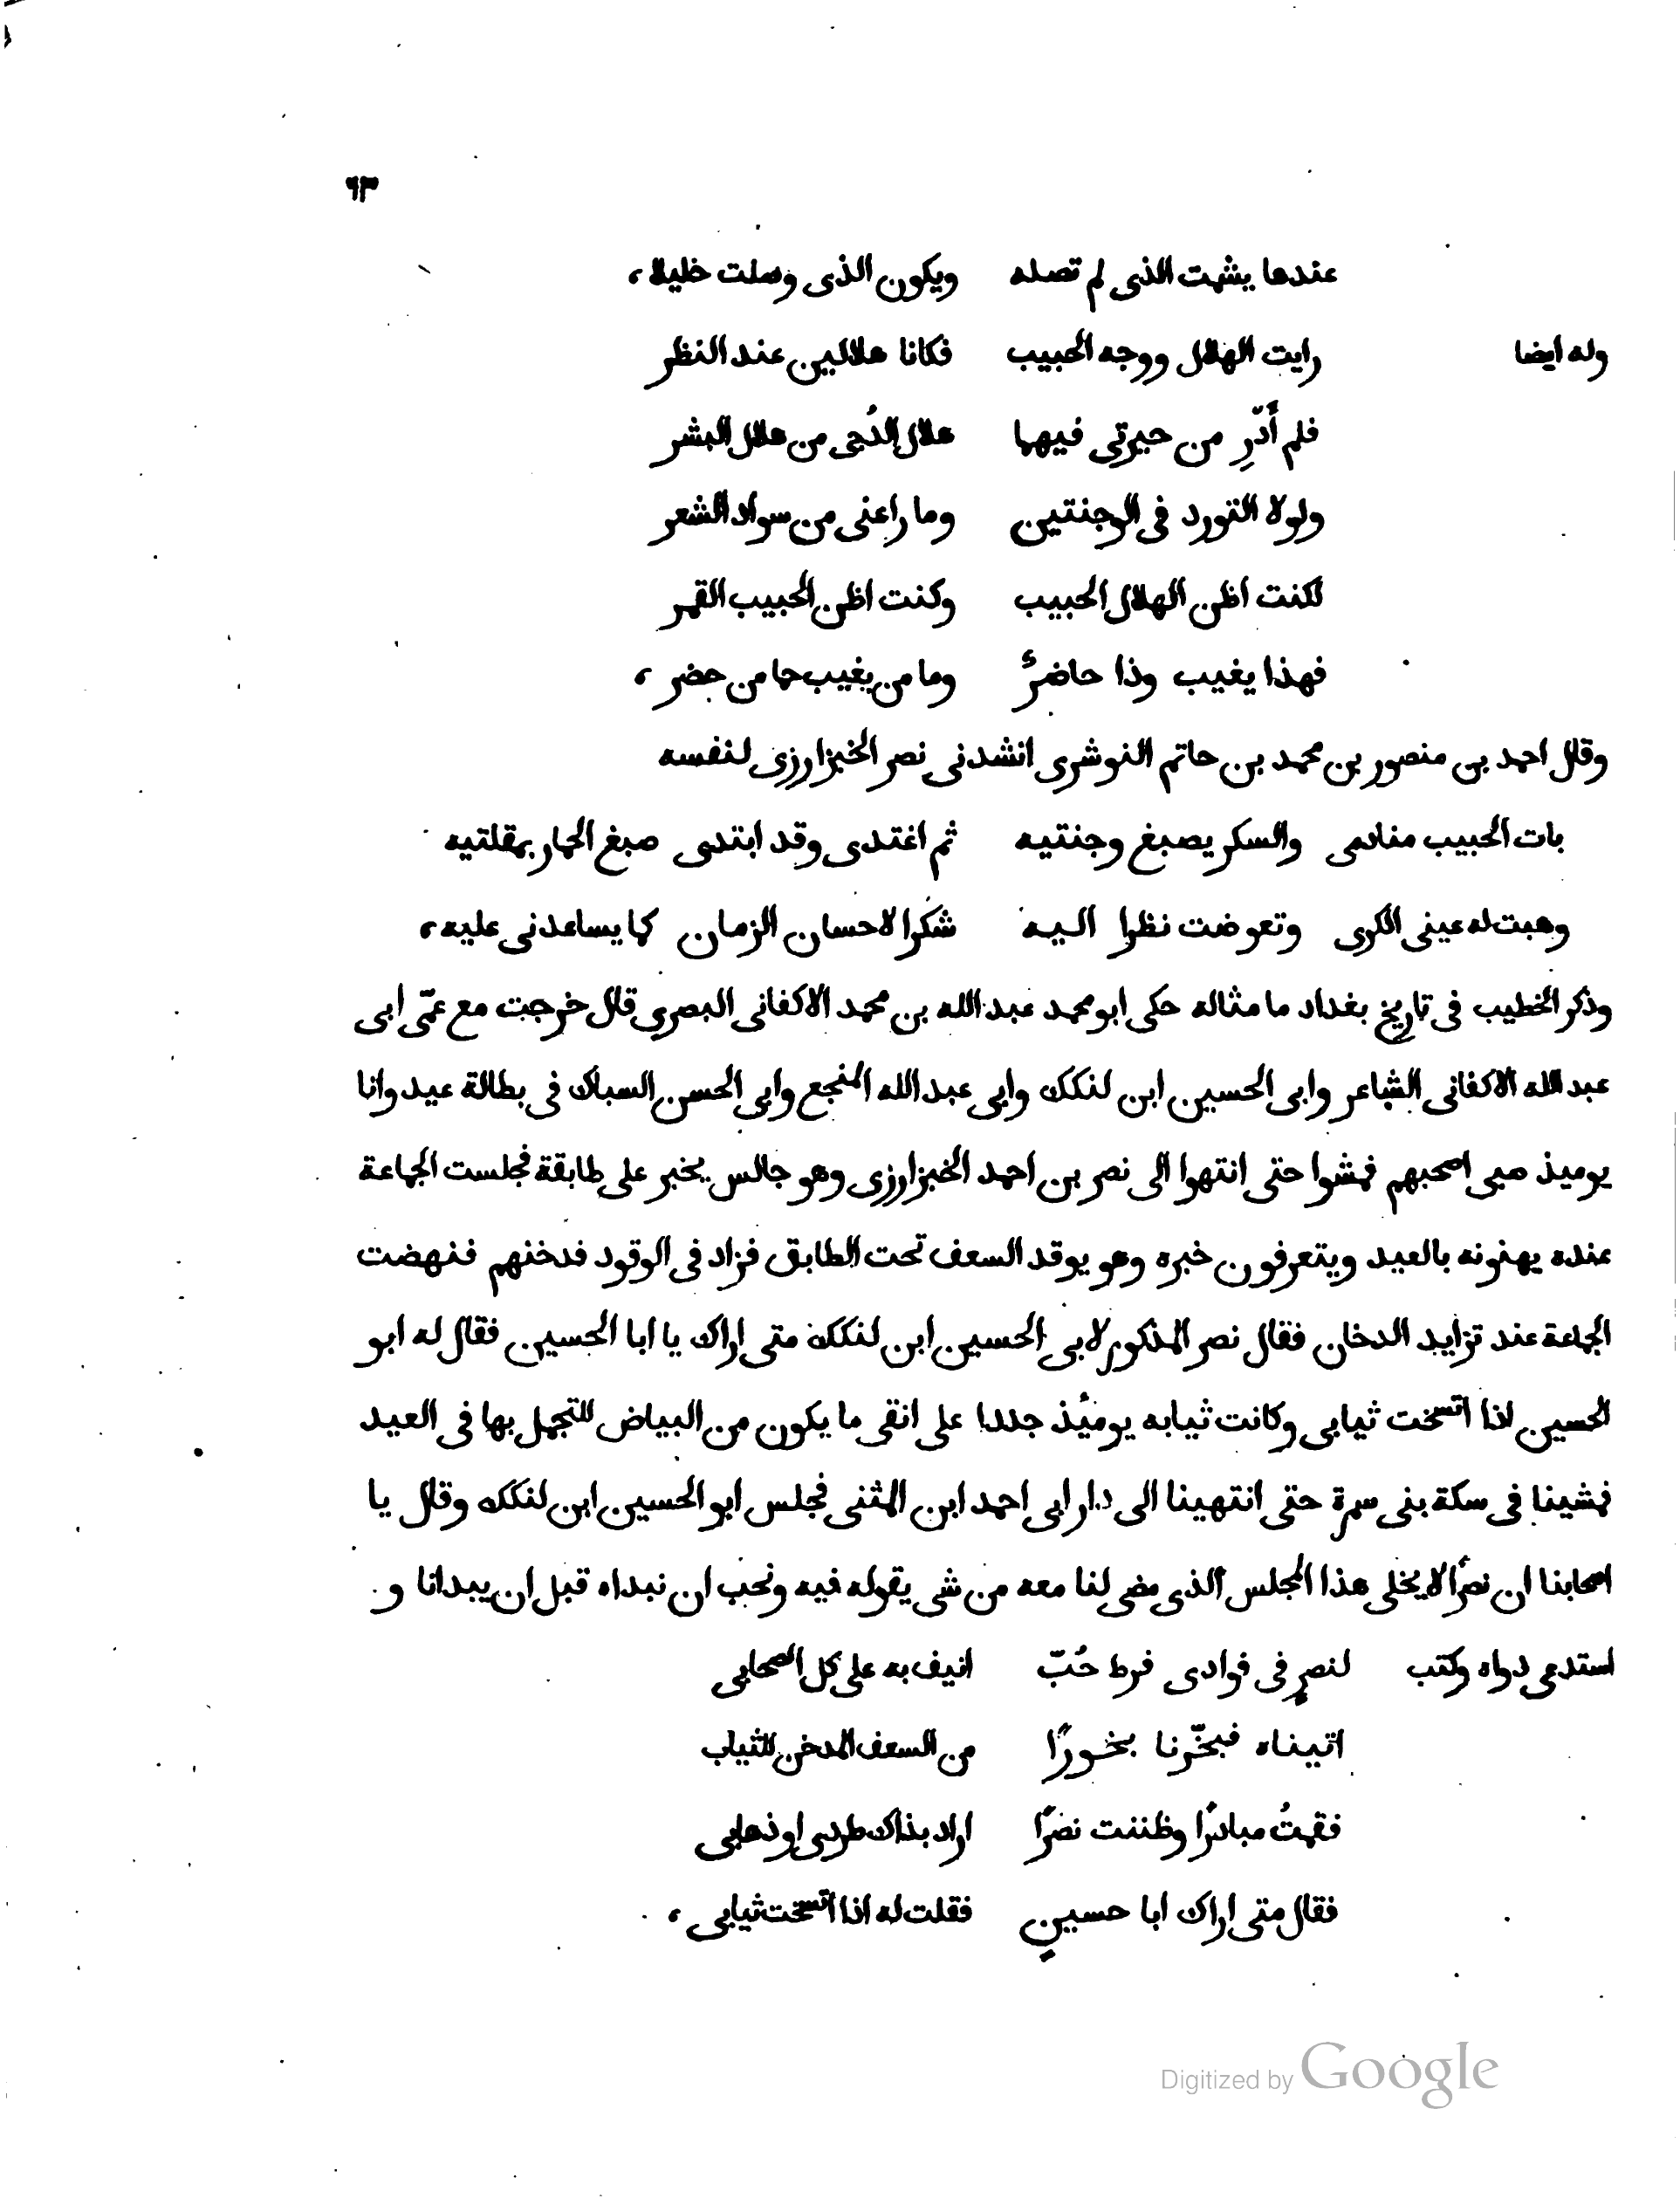 ٦٣
عندها يشمت الذى لم تصله ويكون الذى وصلت خليلا،
وله ايضا رايت الهلال ووجه الحبيب فكانا هلالين عند النظر
فلم أَدْرِ من حيرتى فيهما هلال الدُجى من هلال البشر
ولولا التورد فى الوجنتين وما راعنى من سواد الشعر
لكنت اظن الهلال الحبيب وكنت اظن الحبيب القمر
فهذا يغيب وذا حاضرٌ وما من يغيب كما من حضر،
وقال احمد بن منصور بن محمد بن حاتم النوشرى انشدنى نصر الخبزارزى لنفسه
بات الحبيب منادمى والسكر يصبغ وجنتيه ثم اغتدى وقد ابتدى صبغ الخمار بمقلتيه
وهبت له عينى الكرى وتعوضت نظرا اليه شكرا لاحسان الزمان كما يساعدنى عليه،
وذكر الخطيب فى تاريخ بغداد ما مثاله حكى ابو محمد عبد الله بن محمد الاكفانى البصرى قال خرجت مع عمّى ابى
عبد الله الاكفانى الشاعر وابى الحسين ابن لنكك وابى عبد الله المنجع وابى الحسن السباك فى بطالة عيد وانا
يوميذ صبى اصحبهم فمشوا حتى انتهوا الى نصر بن احمد الخبزارزى وهو جالس يخبر على طابقة فجلست الجماعة
عنده يهنونه بالعيد ويتعرفون خبره وهو يوقد السعف تحت الطابق فزاد فى الوقود فدخنهم فنهضت
الجماعة عند تزايد الدخان فقال نصر المذكور لابى الحسين ابن لنكك متى اراك يا ابا الحسين فقال له ابو
الحسين اذا اتسخت ثيابى وكانت ثيابه يومئذ جددا على انقى ما يكون من البياض للتجمل بها فى العيد
فمشينا فى سكة بنى سمرة حتى انتهينا الى دار ابى احمد ابن المثنى فجلس ابو الحسين ابن لنكك وقال يا
اصحابنا ان نصرًا لا يخلى هذا المجلس الذى مضى لنا معه من شى يقوله فيه ونحب ان نبداه قبل ان يبدانا و
استدعى دواه وكتب لنصرٍ فى فوادى فرط حُبّ انيف به على كل الصحابى
اتيناه فبخّرنا بخورًا من السعف المدخن للثياب
فقمتُ مبادرًا وظننت نصرًا اراد بذاك طردى او ذهابى
فقال متى اراك ابا حسينٍ فقلت له اذا اتسخت ثيابى،
Digitized by Google